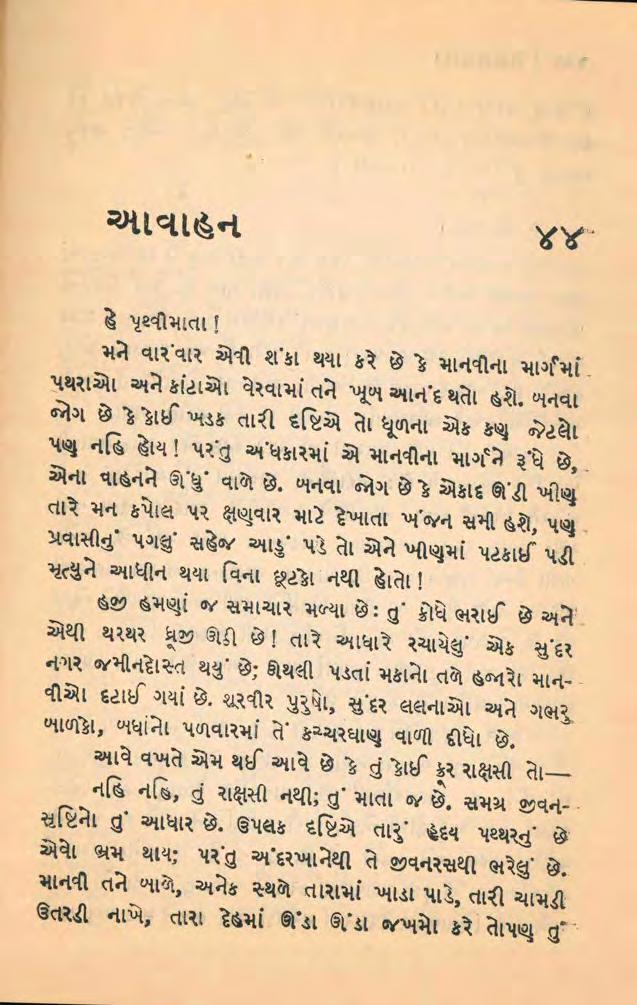 આવાહન
૪૪
હે પૃથ્વીમાતા !
મને વારંવાર એવી શંકા થયા કરે છે કે માનવીના માર્ગમાં
પથરાઓ અને કાંટાઓ વેરવામાં તને ખૂબ આનંદ થતો હશે. બનવા
જોગ છે કે કોઈ ખડક તારી દૃષ્ટિએ તો ધૂળના એક કણ જેટલો
પણ નહિ હોય ! પરંતુ અંધકારમાં એ માનવીના માર્ગને રૂંધે છે,
એના વાહનને ઊંધું વાળે છે. બનવા જોગ છે કે એકાદ ઊંડી ખીણ
તારે મન કપોલ પર ક્ષણવાર માટે દેખાતા ખંજન સમી હશે, પણ
પ્રવાસીનું પગલું સહેજ આડું પડે તો એને ખીણમાં પટકાઈ પડી
મૃત્યુને આધીન થયા વિના છૂટકો નથી હોતો !
હજી હમણાં જ સમાચાર મળ્યા છે : તું ક્રોધે ભરાઈ છે અને
એથી થરથર ધ્રૂજી ઊઠી છે ! તારે આધારે રચાયેલું એક સુંદર
નગર જમીનદોસ્ત થયું છે; ઊથલી પડતાં મકાનો તળે હજારો માન-
વીઓ દટાઈ ગયાં છે. શૂરવીર પુરુષો, સુંદર લલનાઓ અને ગભરુ
બાળકો, બધાંનો પળવારમાં તેં કચ્ચરઘાણ વાળી દીધો છે.
આવે વખતે એમ થઈ આવે છે કે તું કોઈ ક્રૂર રાક્ષસી તો—
નહિ નહિ, તું રાક્ષસી નથી; તું માતા જ છે. સમગ્ર જીવન-
સૃષ્ટિનો તું આધાર છે. ઉપલક દૃષ્ટિએ તારું હૃદય પથ્થરનું છે
એવો ભ્રમ થાય; પરંતુ અંદરખાનેથી તે જીવનરસથી ભરેલું છે.
માનવી તને બાળે, અનેક સ્થળે તારામાં ખાડા પાડે, તારી ચામડી
ઉતરડી નાખે, તારા દેહમાં ઊંડા ઊંડા જખમો કરે તોપણ તું